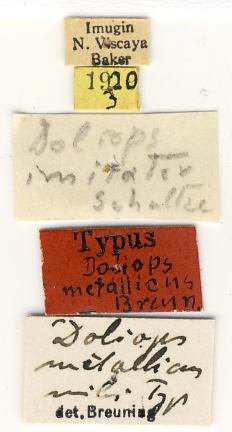 Imugin
N. Viscaya
Baker
1920
3
Doliops
imitator
Schultze
Typus
Doliops
metallicus
Breun.
Doliops
metallicus
mihi Typ
det. Breuning